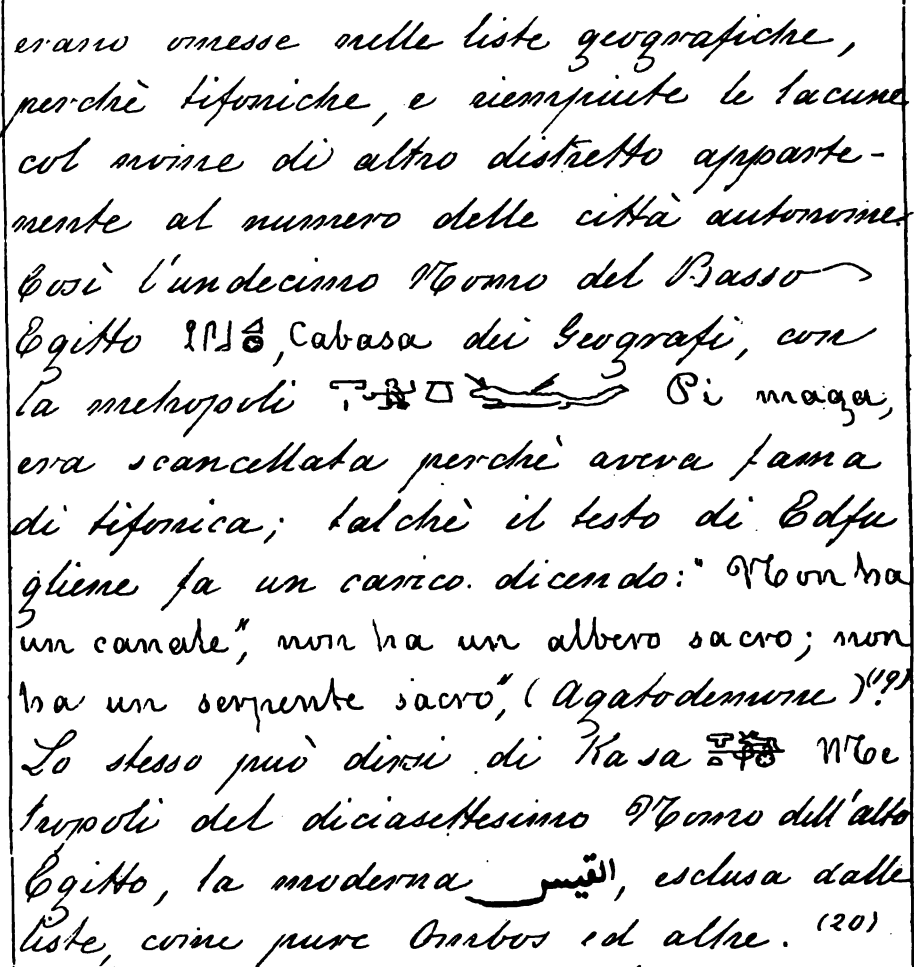 erano omesse nelle liste geografiche,
perchè tifoniche, e riempiute le lacune
col nome di altro distretto apparte-
nente al numero delle città autonome.
Così l'undecimo Nomo del Basso
Egitto , Cabasa dei Geografi, con
la metropoli Pi maga,
era scancellata perchè aveva fama
di tifonica; talchè il testo di Edfu
gliene fa un carico dicendo: "Non ha
un canale", non ha un albero sacro; non
ha un serpente sacro", (Agatodemone)(19).
Lo stesso può dirsi di Kasa Me
tropoli del diciasettesimo Nomo dell'alto
Egitto, la moderna القيس, esclusa dalle
liste, come pure Ombos ed altre. (20)